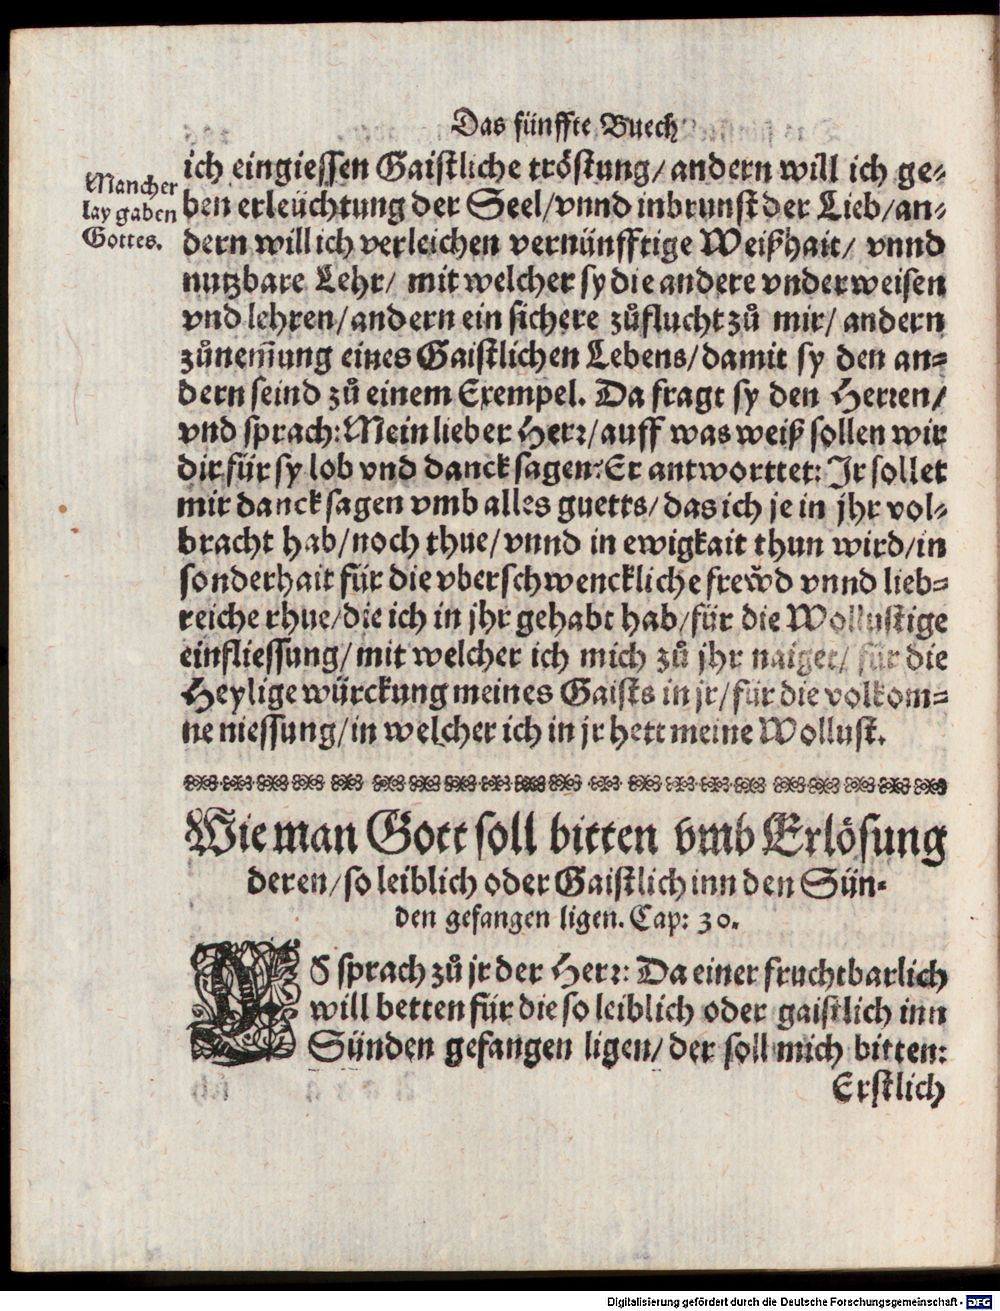 Das fünffte Buech
Mancher
lay gaben
Gottes.
ich eingiessen Gaistliche tröstung/ andern will ich ge-
ben erleüchtung der Seel/ vnnd inbrunst der Lieb/ an-
dern will ich verleichen vernünfftige Weißhait/ vnnd
nutzbare Lehr/ mit welcher sy die andere vnderweisen
vnd lehren/ andern ein sichere zůflucht zů mir/ andern
zůnem̃ung eines Gaistlichen Lebens/ damit sy den an-
dern seind zů einem Exempel. Da fragt sy den Herren/
vnd sprach: Mein lieber Herr/ auff was weiß sollen wir
dir für sy lob vnd danck sagen? Er antworttet: Ir sollet
mir danck sagen vmb alles guetts/ das ich je in jhr vol-
bracht hab/ noch thue/ vnnd in ewigkait thun wird/ in
sonderhait für die vberschwenckliche frew̆d vnnd lieb-
reiche rhue/ die ich in jhr gehabt hab/ für die Wollustige
einfliessung/ mit welcher ich mich zů jhr naiget/ für die
Heylige würckung meines Gaists in jr/ für die volkom-
ne niessung/ in welcher ich in jr hett meine Wollust.
Wie man Gott soll bitten vmb Erlösung
deren/ so leiblich oder Gaistlich inn den Sün-
den gefangen ligen. Cap: 30.
ES sprach zů jr der Herr: Da einer fruchtbarlich
will betten für die so leiblich oder gaistlich inn
Sünden gefangen ligen/ der soll mich bitten:
Erstlich
Digitalisierung gefördert durch die Deutsche Forschungsgemeinschaft - DFG